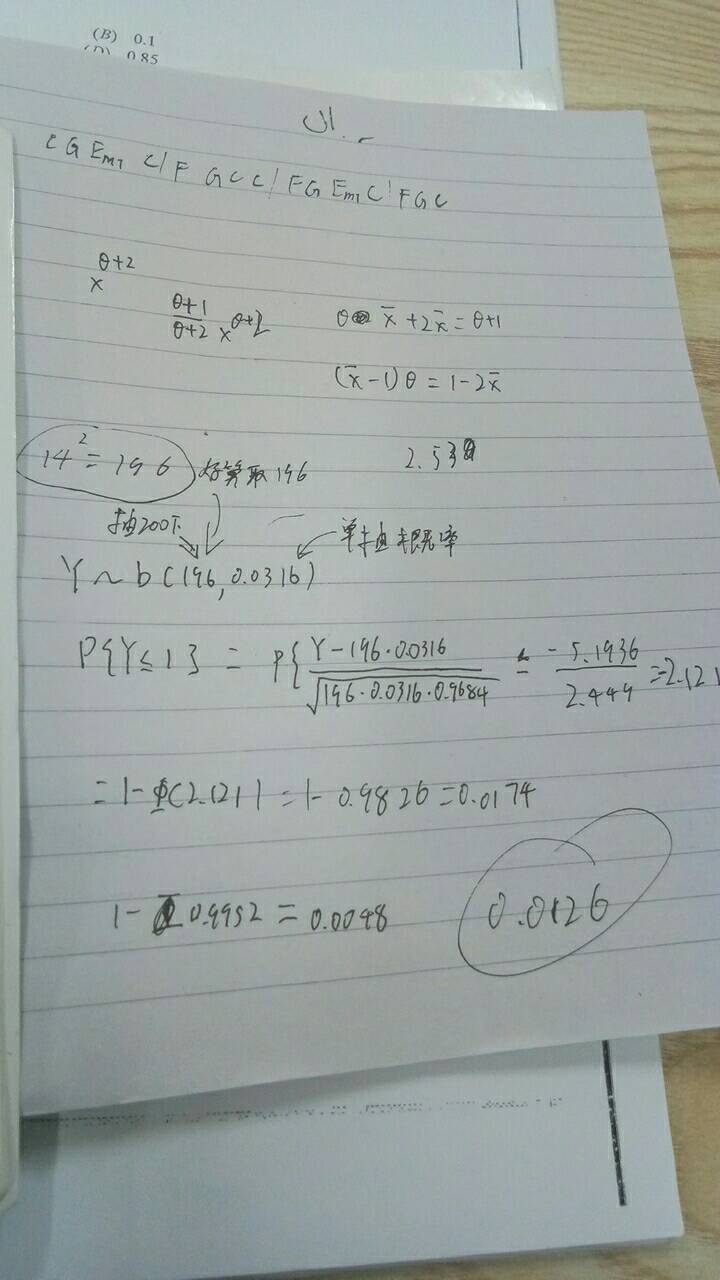 (B) 0.1
(D) 0.85
C G Em7 C / F G C C / F G Em7 C / F G C
x^{θ+2}
\frac{θ+1}{θ+2} x^{θ+2}
θ x̄ + 2x̄ = θ+1
(x̄-1)θ = 1-2x̄
14² = 196 好算取196
2.53
抽200下 单抽概率
Y ~ b(196, 0.0316)
P{Y ≤ 1} = P{ \frac{Y-196·0.0316}{\sqrt{196·0.0316·0.9684}} ≤ \frac{-5.1936}{2.449} = -2.121
= 1-Φ(2.121) = 1-0.9826 = 0.0174
1- 0.9952 = 0.0048
0.0126